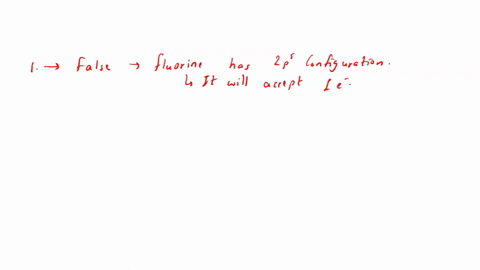 1. → False → fluorine has 2p⁵ Configuration.
↳ It will accept 1 e⁻.